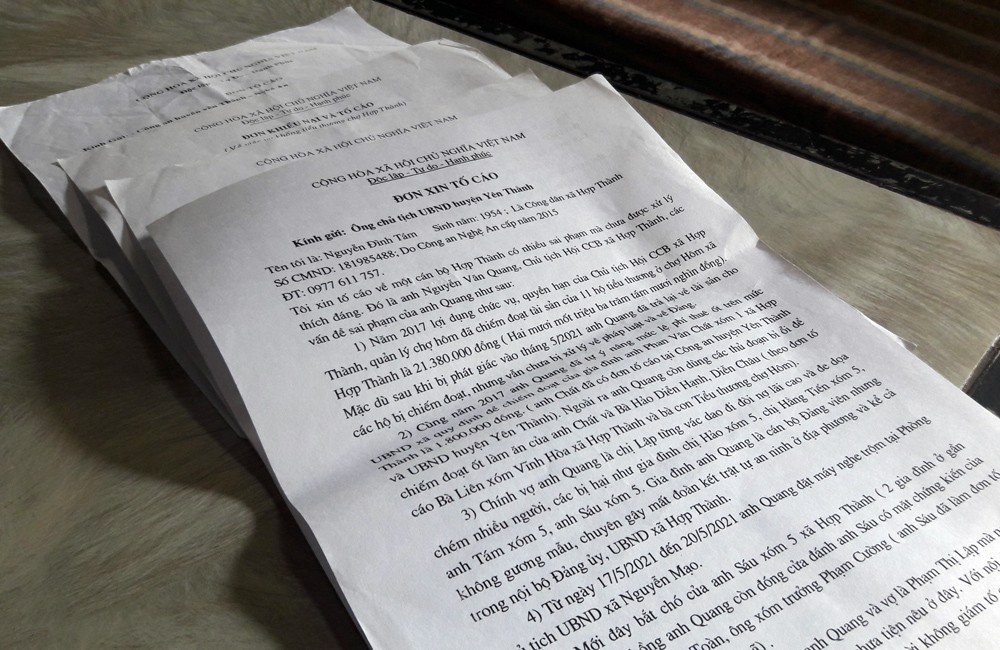 CỘNG HÒA XÃ HỘI CHỦ NGHĨA VIỆT NAM
TỐ CÁO
CỘNG HÒA XÃ HỘI CHỦ NGHĨA VIỆT NAM
Độc lập - Tự do - Hạnh phúc
ĐƠN KHIẾU NẠI VÀ TỐ CÁO
tiểu thương chợ Hợp Thành)
CỘNG HÒA XÃ HỘI CHỦ NGHĨA VIỆT NAM
CỘNG HÒA XÃ HỘI CHỦ NGHĨA VIỆT NAM
Độc lập - Tự do - Hạnh phúc
ĐƠN XIN TỐ CÁO
Kính gửi: Ông chủ tịch UBND huyện Yên Thành
Tên tôi là: Nguyễn Đình Tám Sinh năm: 1954 ; Là Công dân xã Hợp Thành
Số CMND: 181985488; Do Công an Nghệ An cấp năm 2015
ĐT: 0977 611 757.
Tôi xin tố cáo về một cán bộ Hợp Thành có nhiều sai phạm mà chưa được xử lý
thích đáng. Đó là anh Nguyễn Văn Quang, Chủ tịch Hội CCB xã Hợp Thành, các
vấn đề sai phạm của anh Quang như sau:
1) Năm 2017 lợi dụng chức vụ, quyền hạn của Chủ tịch Hội CCB xã Hợp
Thành, quản lý chợ hôm đã chiếm đoạt tài sản của 11 hộ tiểu thương ở chợ Hôm, xã
Hợp Thành là 21.380.000 đồng ( Hai mươi mốt triệu ba trăm tám mươi nghìn đồng).
Mặc dù sau khi bị phát giác vào tháng 5/2021 anh Quang đã trả lại về tài sản cho
các hộ bị chiếm đoạt, nhưng vẫn chưa bị xử lý về pháp luật và về Đảng.
2) Cũng năm 2017 anh Quang đã tự ý nâng mức lệ phí thuê ốt trên mức
UBND xã quy định để chiếm đoạt của gia đình anh Phan Văn Chất xóm 1 xã Hợp
Thành là 1.800.000 đồng. ( anh Chất đã có đơn tố cáo tại Công an huyện Yên Thành
và UBND huyện Yên Thành). Ngoài ra anh Quang còn dùng các thủ đoạn bỉ ổi để
chiếm đoạt ốt làm ăn của anh Chất và Bà Hảo Diễn Hạnh, Diễn Châu ( theo đơn tố
cáo Bà Liên xóm Vĩnh Hòa xã Hợp Thành và bà con Tiểu thương chợ Hôm).
3) Chính vợ anh Quang là chị Lập từng vác dao đi đòi nợ lãi cao và đe dọa
chém nhiều người, các bị hại như gia đình chị Hảo xóm 5, chị Hằng Tiến xóm 5,
anh Tám xóm 5, anh Sáu xóm 5. Gia đình anh Quang là cán bộ Đảng viên nhưng
không gương mẫu, chuyên gây mất đoàn kết trật tự an ninh ở địa phương và kể cả
trong nội bộ Đảng ủy, UBND xã Hợp Thành.
4) Từ ngày 17/5/2021 đến 20/5/2021 anh Quang đặt máy nghe trộm tại Phòng
tịch UBND xã Nguyễn Mạo.
Mới đây bắt chó của anh Sáu xóm 5 xã Hợp Thành ( 2 gia đình ở gần
anh Quang còn đóng cửa đánh anh Sáu có mặt chứng kiến của
Toàn, ông xóm trưởng Phạm Cường ( anh Sáu đã làm đơn tố
anh Quang và vợ là Phạm Thị Lập mà
chưa tiện nêu ở đây. Với
không giám tố